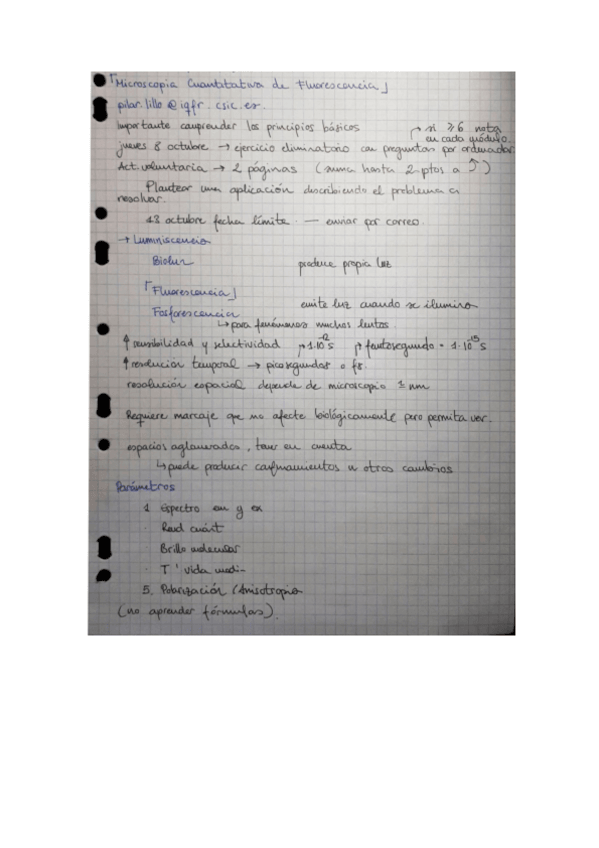 「Microscopia Cuantitativa de Fluorescencia」
pilar.lillo@iqfr.csic.es.
Importante comprender los principios básicos
si ≥ 6 nota en cada módulo.
jueves 8 octubre → ejercicio eliminatorio con preguntas por ordenador
Act. voluntaria → 2 páginas (suma hasta 2 ptos a ↑)
Plantear una aplicación describiendo el problema a
resolver.
13 octubre fecha límite. — enviar por correo.
→ Luminiscencia
Biolum produce propia luz
「Fluorescencia」
emite luz cuando se ilumina
Fosforescencia
↳ para fenómenos muchos lentos.
↑ sensibilidad y selectividad 1·10⁻¹² s femtosegundo = 1·10⁻¹⁵ s
↑ resolución temporal → picosegundos o fs.
resolución espacial depende de microscopio 1 nm
Requiere marcaje que no afecte biológicamente pero permita ver.
espacios aglomerados, tener en cuenta
↳ puede producir confinamientos u otros cambios
Parámetros
1 Espectro em y ex
· Rend cuánt
· Brillo molecular
· T' vida medi-
5. Polarización (Anisotropía
(no aprender fórmulas).